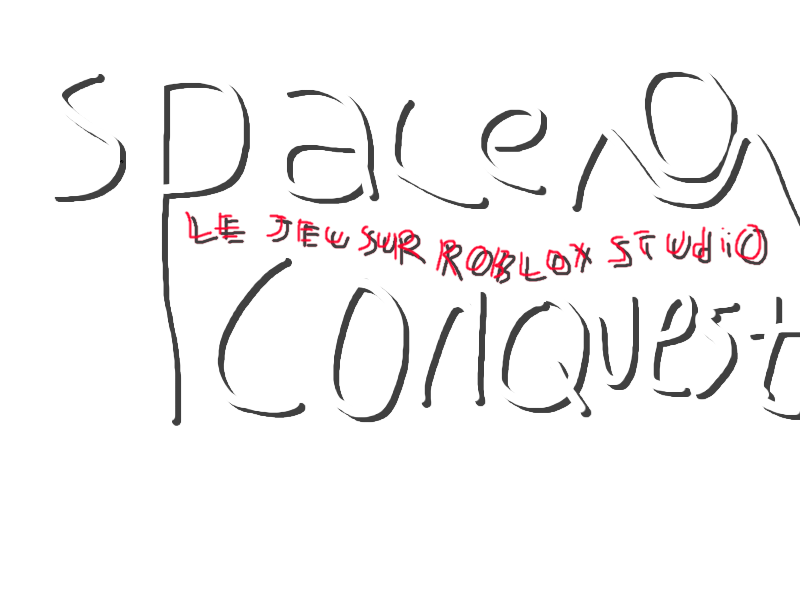 space
LE JEU SUR ROBLOX STUdiO
COnQUest